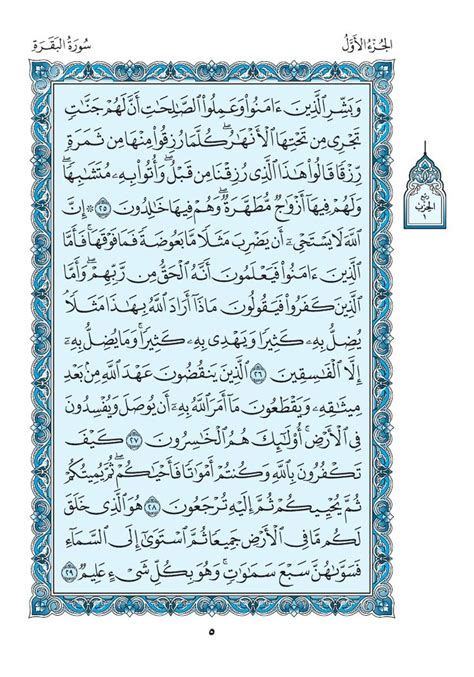 الجُزْءُ الأَوَّلُ
سُورَةُ البَقَرَةِ
وَبَشِّرِ ٱلَّذِينَ ءَامَنُوا۟ وَعَمِلُوا۟ ٱلصَّـٰلِحَـٰتِ أَنَّ لَهُمْ جَنَّـٰتٍ
تَجْرِى مِن تَحْتِهَا ٱلْأَنْهَـٰرُ ۖ كُلَّمَا رُزِقُوا۟ مِنْهَا مِن ثَمَرَةٍ
رِّزْقًا ۙ قَالُوا۟ هَـٰذَا ٱلَّذِى رُزِقْنَا مِن قَبْلُ ۖ وَأُتُوا۟ بِهِۦ مُتَشَـٰبِهًا ۖ
وَلَهُمْ فِيهَآ أَزْوَٰجٌ مُّطَهَّرَةٌ ۖ وَهُمْ فِيهَا خَـٰلِدُونَ ٢٥ ۞ إِنَّ
ٱللَّهَ لَا يَسْتَحْىِۦٓ أَن يَضْرِبَ مَثَلًا مَّا بَعُوضَةً فَمَا فَوْقَهَا ۚ فَأَمَّا
ٱلَّذِينَ ءَامَنُوا۟ فَيَعْلَمُونَ أَنَّهُ ٱلْحَقُّ مِن رَّبِّهِمْ ۖ وَأَمَّا
ٱلَّذِينَ كَفَرُوا۟ فَيَقُولُونَ مَاذَآ أَرَادَ ٱللَّهُ بِهَـٰذَا مَثَلًا ۘ
يُضِلُّ بِهِۦ كَثِيرًا وَيَهْدِى بِهِۦ كَثِيرًا ۚ وَمَا يُضِلُّ بِهِۦٓ
إِلَّا ٱلْفَـٰسِقِينَ ٢٦ ٱلَّذِينَ يَنقُضُونَ عَهْدَ ٱللَّهِ مِنۢ بَعْدِ
مِيثَـٰقِهِۦ وَيَقْطَعُونَ مَآ أَمَرَ ٱللَّهُ بِهِۦٓ أَن يُوصَلَ وَيُفْسِدُونَ
فِى ٱلْأَرْضِ ۚ أُو۟لَـٰٓئِكَ هُمُ ٱلْخَـٰسِرُونَ ٢٧ كَيْفَ
تَكْفُرُونَ بِٱللَّهِ وَكُنتُمْ أَمْوَٰتًا فَأَحْيَـٰكُمْ ۖ ثُمَّ يُمِيتُكُمْ
ثُمَّ يُحْيِيكُمْ ثُمَّ إِلَيْهِ تُرْجَعُونَ ٢٨ هُوَ ٱلَّذِى خَلَقَ
لَكُم مَّا فِى ٱلْأَرْضِ جَمِيعًا ثُمَّ ٱسْتَوَىٰٓ إِلَى ٱلسَّمَآءِ
فَسَوَّىٰهُنَّ سَبْعَ سَمَـٰوَٰتٍ ۚ وَهُوَ بِكُلِّ شَىْءٍ عَلِيمٌ ٢٩
ربع
الحزب
١
٥